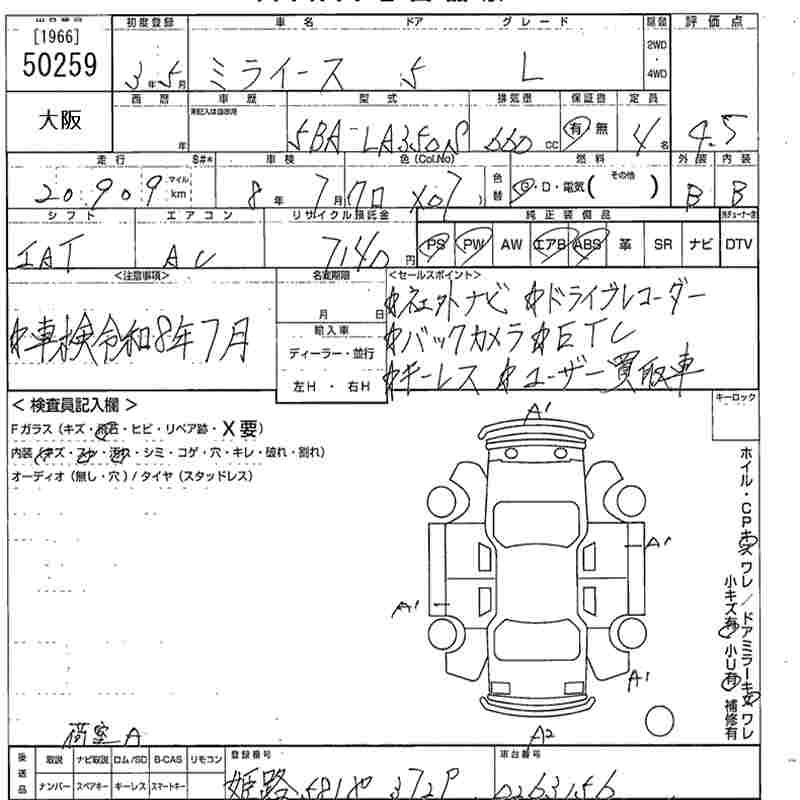 [1966]
50259
大阪
初度登録 車名 ドア グレード 駆動 評価点
3年5月 ミライース 5 L 2WD・4WD 4.5
西暦 車歴 型式 排気量 保証書 定員
年 未記入は自家用 5BA-LA350S 660cc 有 無 4名
走行 S#* 車検 色(Col.No) 燃料 外装 内装
20,909 マイル km 8年7月 X07) 色替 G・D・電気( その他 ) B B
シフト エアコン リサイクル預託金 純正装備品
IAT AC 7140円 PS PW AW エアB ABS 革 SR ナビ DTV
<注意事項> 名変期限 <セールスポイント>
車検令和8年7月 月 日
輸入車
ディーラー・並行
左H・右H
社外ナビ ドライブレコーダー
バックカメラ ETC
キーレス ユーザー買取車
キーロック
<検査員記入欄>
Fガラス(キズ・飛石・ヒビ・リペア跡・X要)
内装(キズ・スレ・汚れ・シミ・コゲ・穴・キレ・破れ・割れ)
オーディオ(無し・穴)/タイヤ(スタッドレス)
A1
A1
A1
A1
A2
ホイル・CPキズ ワレ/ドアミラーキズ ワレ
小キズ有 小U有 補修有
荷室A
後送品 取説 ナビ取説 ロム/SD B-CAS リモコン 登録番号 車台番号
ナンバー スペアキー キーレス スマートキー 姫路 581 372P 0263156